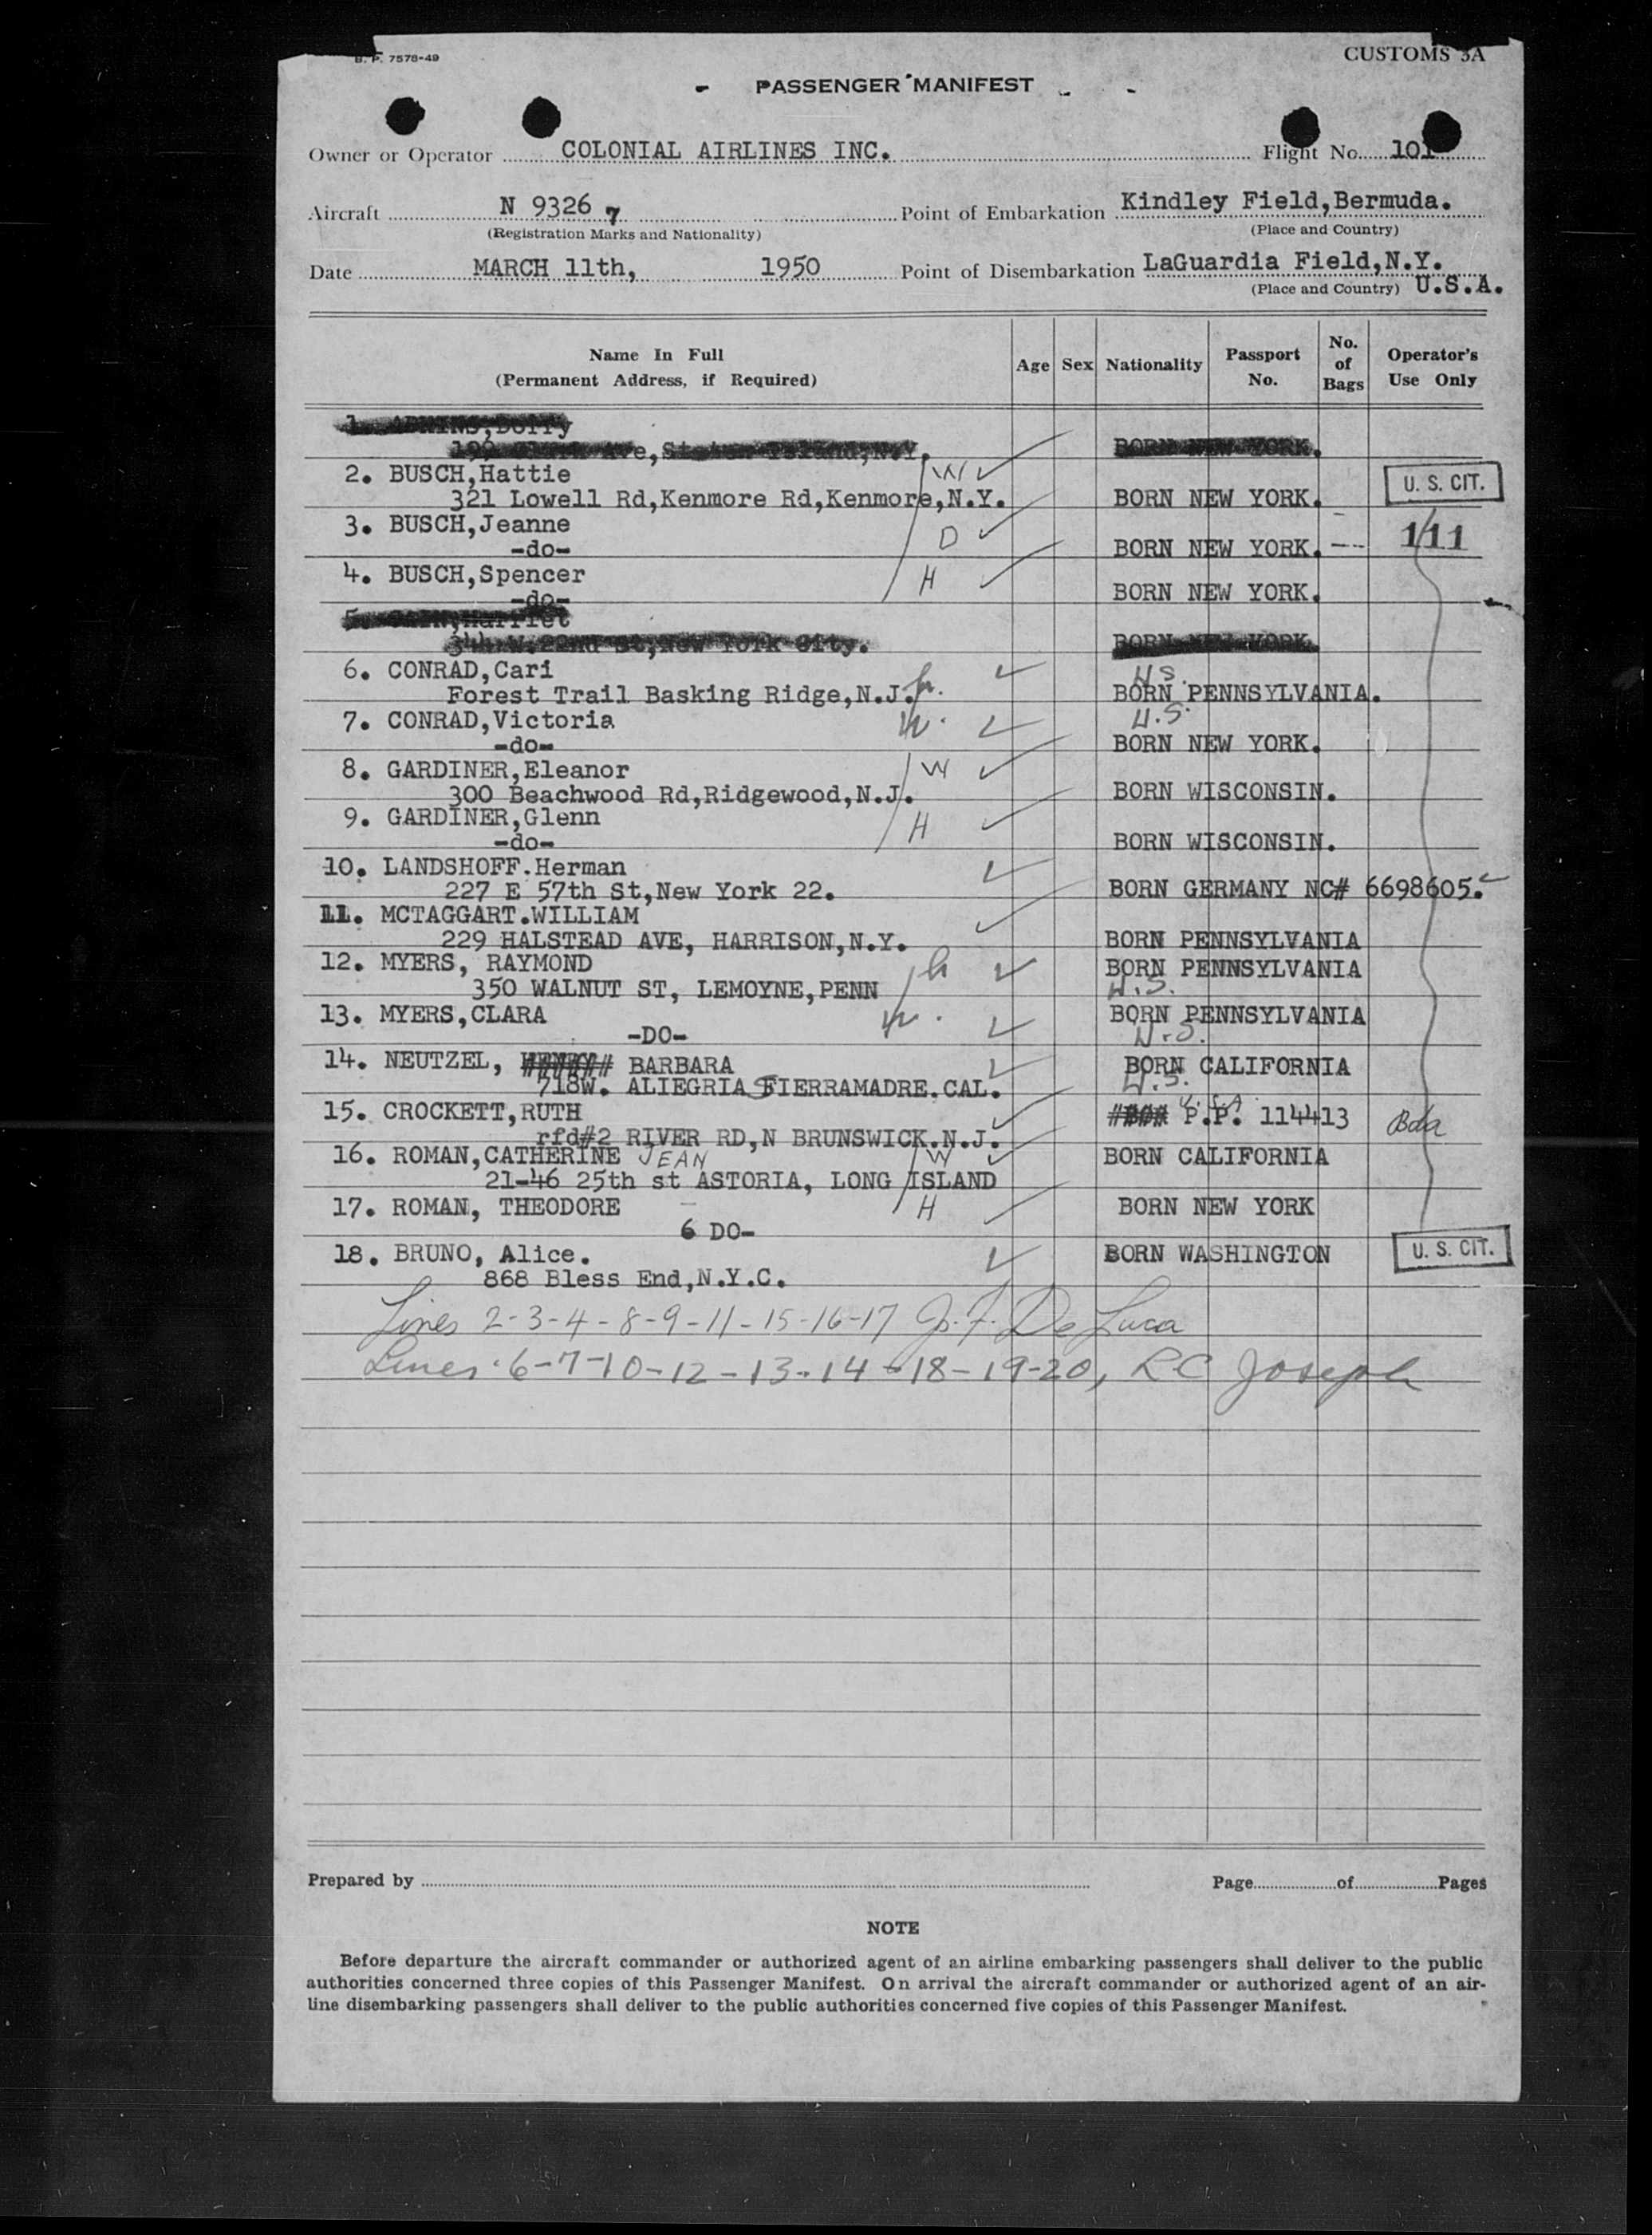 B. P. 7578-49
CUSTOMS 3A
PASSENGER MANIFEST
Owner or Operator COLONIAL AIRLINES INC. Flight No. 101
Aircraft N 93267 Point of Embarkation Kindley Field,Bermuda.
(Registration Marks and Nationality) (Place and Country)
Date MARCH 11th, 1950 Point of Disembarkation LaGuardia Field,N.Y.
(Place and Country) U.S.A.
Name In Full (Permanent Address, if Required) Age Sex Nationality Passport No. No. of Bags Operator's Use Only
1.
Ave,Staten Island,N.Y. BORN NEW YORK.
2. BUSCH,Hattie W
321 Lowell Rd,Kenmore Rd,Kenmore,N.Y. BORN NEW YORK. U. S. CIT.
3. BUSCH,Jeanne D
-do- BORN NEW YORK. 111
4. BUSCH,Spencer H
-do- BORN NEW YORK.
5. Harriet
344 W.22nd St,New York City. BORN NEW YORK.
6. CONRAD,Carl U.S.
Forest Trail Basking Ridge,N.J. h. BORN PENNSYLVANIA.
7. CONRAD,Victoria W. U.S.
-do- BORN NEW YORK.
8. GARDINER,Eleanor W
300 Beachwood Rd,Ridgewood,N.J. BORN WISCONSIN.
9. GARDINER,Glenn H
-do- BORN WISCONSIN.
10. LANDSHOFF.Herman
227 E 57th St,New York 22. BORN GERMANY NC# 6698605.
11. MCTAGGART.WILLIAM
229 HALSTEAD AVE, HARRISON,N.Y. BORN PENNSYLVANIA
12. MYERS, RAYMOND h BORN PENNSYLVANIA
350 WALNUT ST, LEMOYNE,PENN U.S.
13. MYERS,CLARA W. BORN PENNSYLVANIA
-DO- U.S.
14. NEUTZEL, BARBARA BORN CALIFORNIA
718W. ALIEGRIA SIERRAMADRE.CAL. U.S.
15. CROCKETT,RUTH U.S.A. P.P. 114413 Bda
rfd#2 RIVER RD,N BRUNSWICK.N.J.
16. ROMAN,CATHERINE JEAN W BORN CALIFORNIA
21-46 25th st ASTORIA, LONG ISLAND
17. ROMAN, THEODORE H BORN NEW YORK
6 DO-
18. BRUNO, Alice. BORN WASHINGTON U. S. CIT.
868 Bless End,N.Y.C.
Lines 2-3-4-8-9-11-15-16-17 J. F. De Luca
Lines 6-7-10-12-13-14-18-19-20, RC Joseph
Prepared by Page of Pages
NOTE
Before departure the aircraft commander or authorized agent of an airline embarking passengers shall deliver to the public
authorities concerned three copies of this Passenger Manifest. On arrival the aircraft commander or authorized agent of an air-
line disembarking passengers shall deliver to the public authorities concerned five copies of this Passenger Manifest.